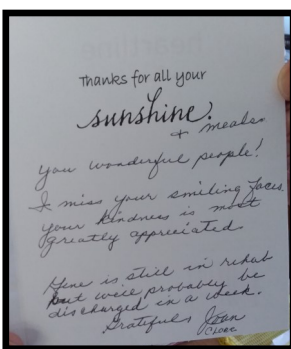 Thanks for all your
sunshine!
+ meals.
you wonderful people!
I miss your smiling faces.
your kindness is most
greatly appreciated
Gene is still in rehab
but will probably be
discharged in a week.
Grateful, Joan